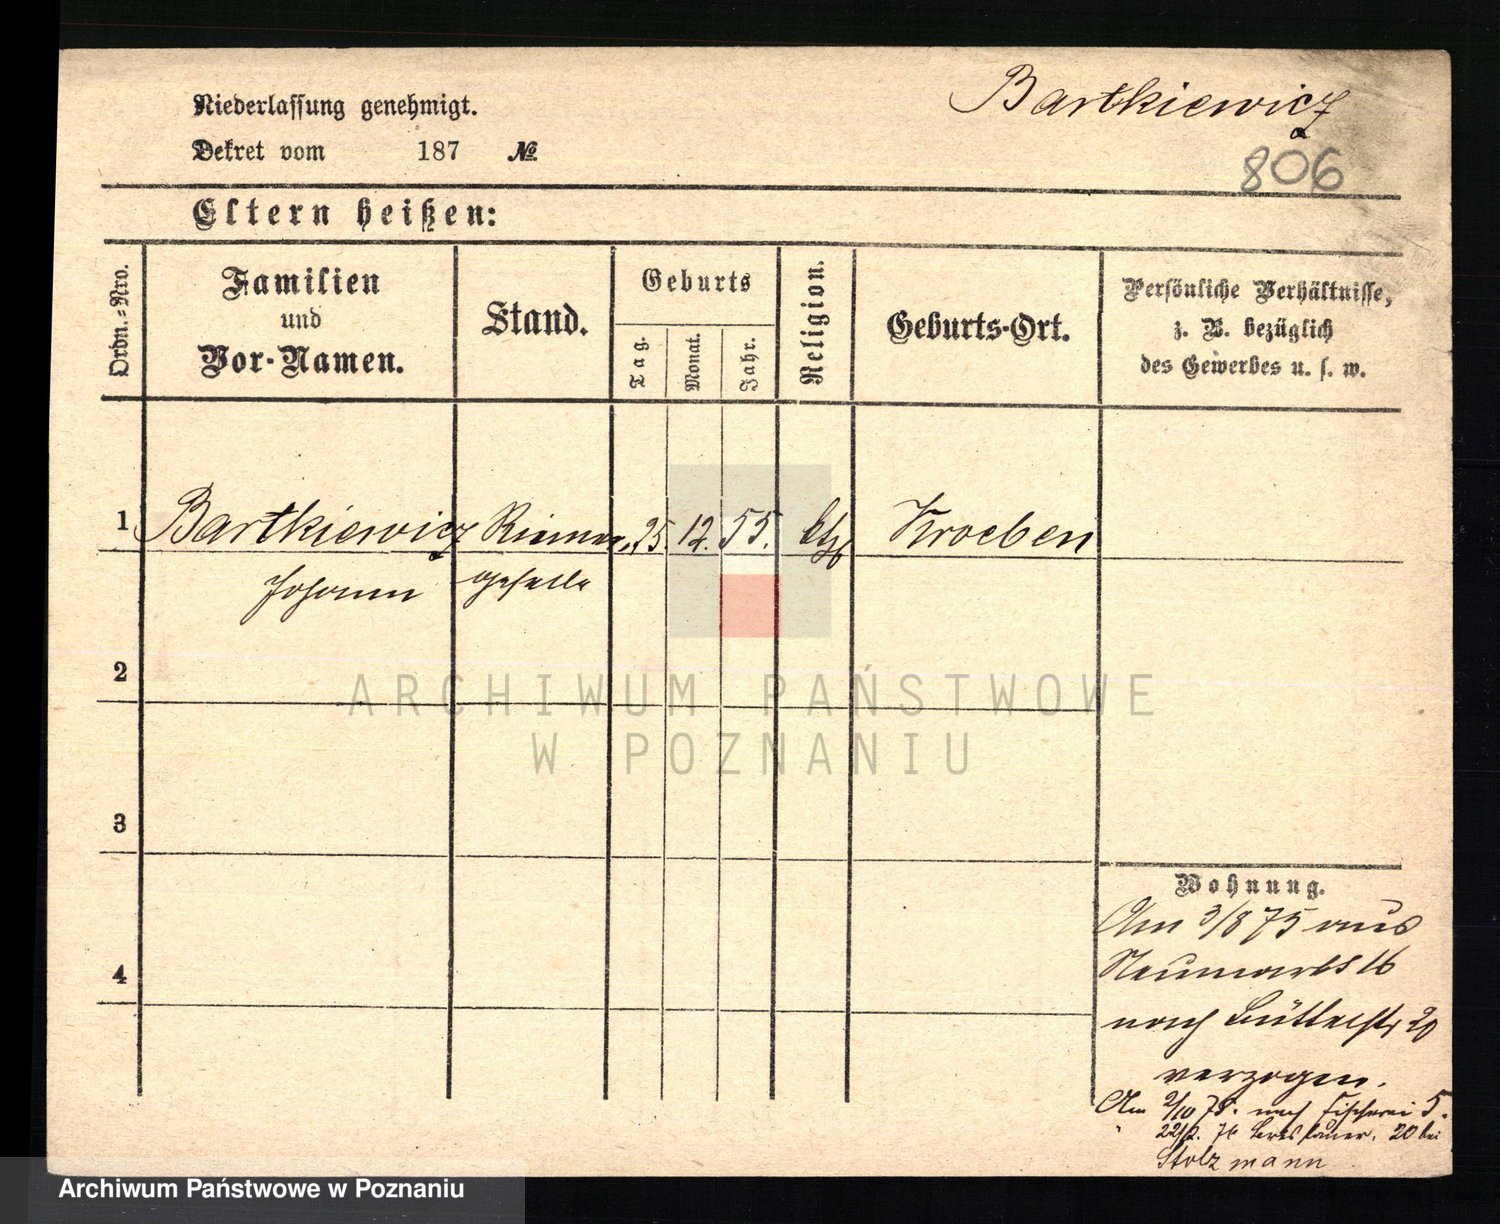 Niederlassung genehmigt.
Bartkiewicz
Dekret vom 187 №
806
Eltern heißen:
Ordn.-Nro.
Familien
und
Vor-Namen.
Stand.
Geburts
Tag.
Monat.
Jahr.
Religion.
Geburts-Ort.
Persönliche Verhältnisse,
z. B. bezüglich
des Gewerbes u. s. w.
1 Bartkiewicz Riemer 25. 12. 55. kth Kroeben
Johann geselle
2
ARCHIWUM PAŃSTWOWE
W POZNANIU
3
Wohnung.
Am 3/8 75 aus
Neumarkt 16
nach Büttelstr 20
verzogen.
Am 2/10 75. nach Fischerei 5.
76 20 bei
Stolzmann
4
Archiwum Państwowe w Poznaniu